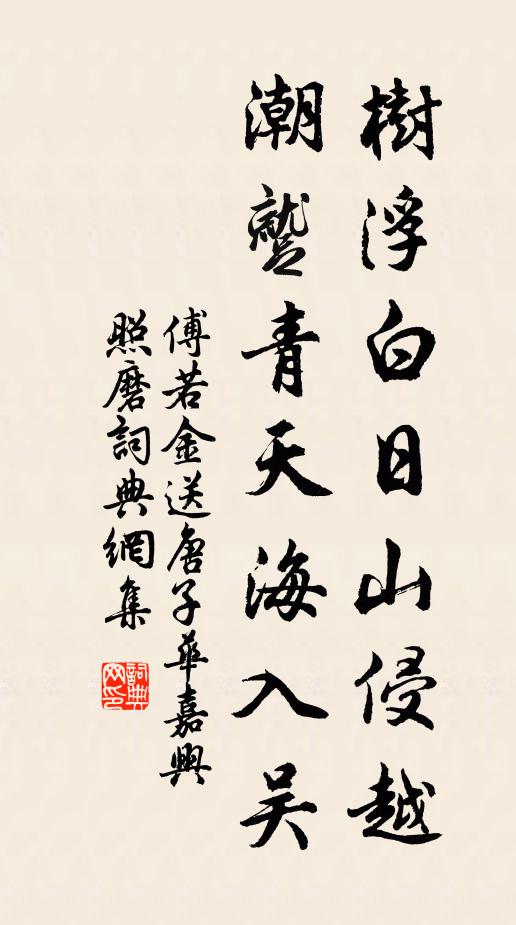 樹浮白日山侵越
潮蹵青天海入吴
傅若金送唐子華嘉興
照磨詞典網集
詞典网印